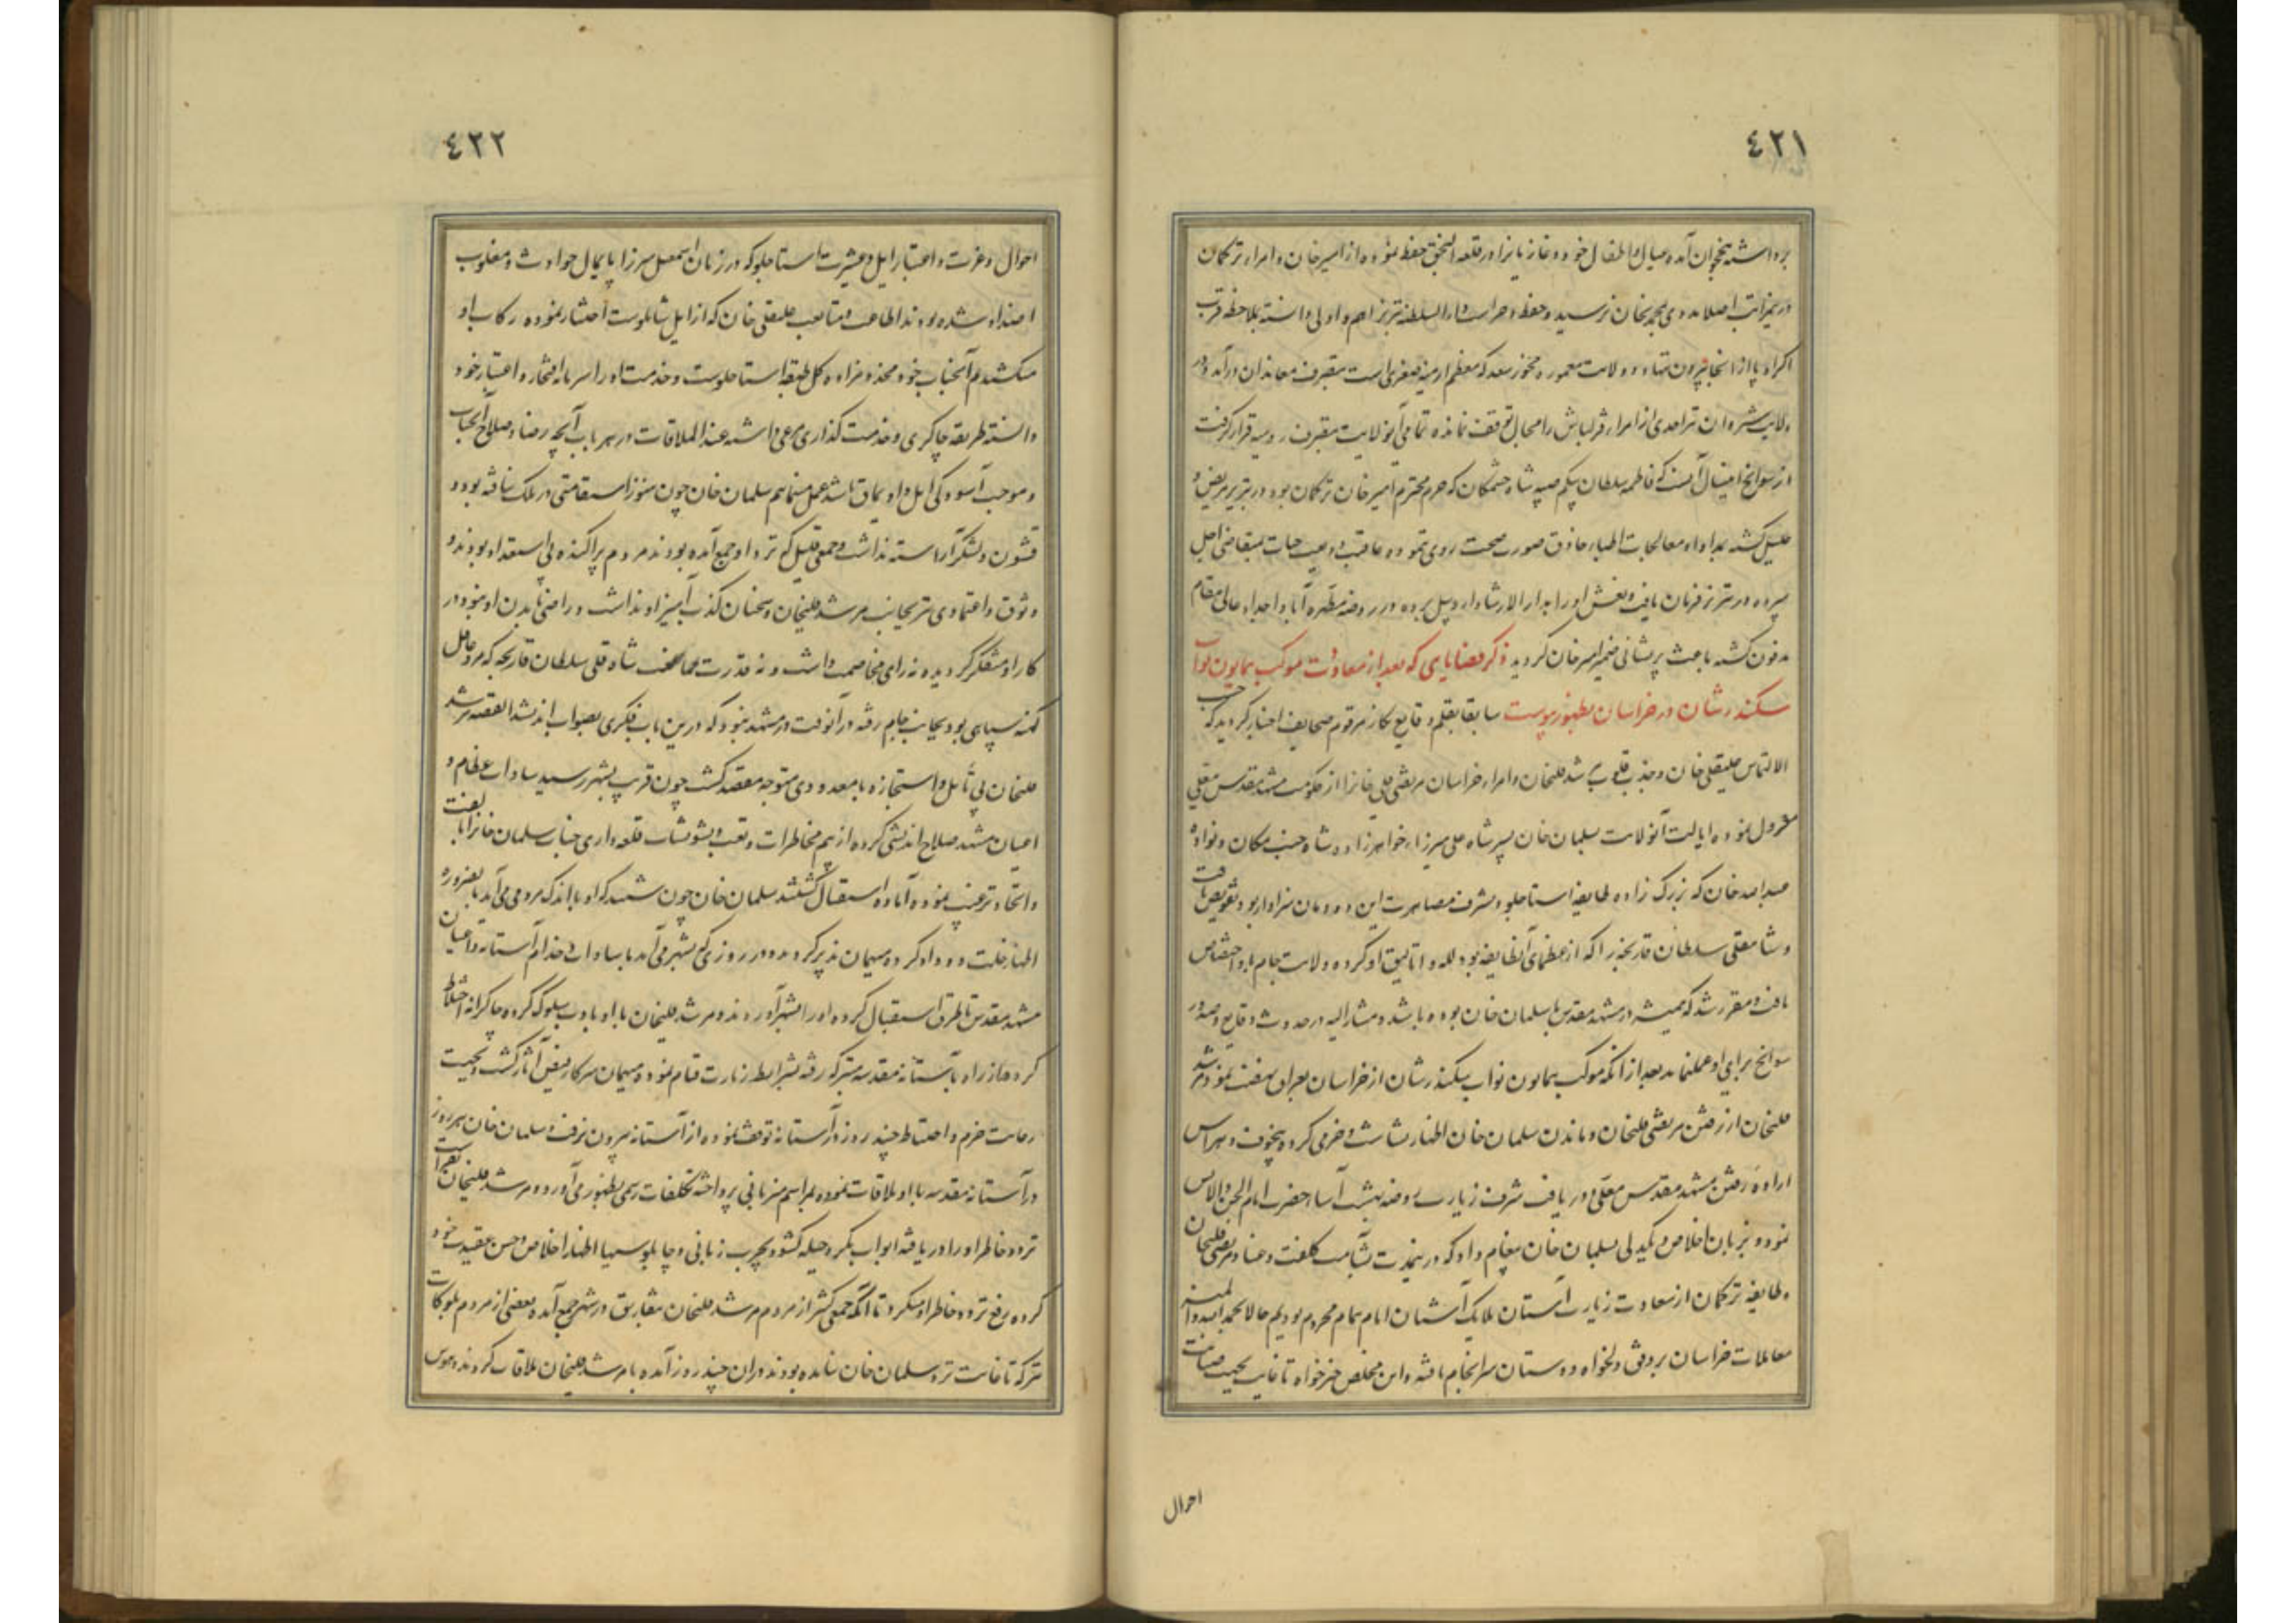 ٤٢١
برداشته بنخجوان آمده عیال و اطفال خود و غازیانرا در قلعه النجق حفظ نموده از امیرخان و امراء ترکمان
درینمراتب اصلا مددی بمحمدیخان نرسید و حفظ و حراست دارالسلطنه تبریز اهم و اولی دانسته بملاحظه قرب
اکراد پا از آنجا بیرون ننهاد و ولایت معموره چخور سعد که معظم ارمنیه صغری است بتصرف معاندان درآمد و در
ولایت شیروان نیز احدی از امراء قزلباش را مجال توقف نمانده تمامی آنولایت بتصرف رومیه قرار گرفت
از سوانح اینسال آنست که فاطمه سلطان بیگم صبیه شاه جنتمکان که حرم محترم امیرخان ترکمان بود در تبریز مریض و
علیل گشته بمداوا و معالجات اطباء حاذق صورت صحت روی ننموده عاقبت ودیعت حیات بمتقاضی اجل
سپرده در تبریز فرمان یافت و نعش او را بدار الارشاد اردبیل برده در روضه مطهره آبا و اجداد عالی مقام
مدفون گشته باعث پریشانی ضمیر امیرخان گردید ذکر قضایای که بعد از معاودت موکب همایون نواب
سکندر شان در خراسان بظهور پیوست سابقا بقلم وقایع نگار مرقوم صحایف اخبار گردید که حسب
الالتماس علیقلی خان و جذب قلوب مرشد قلیخان و امراء خراسان مرتضی قلی خانرا از حکومت مشهد مقدس معلی
معزول نموده ایالت آنولایت بسلمان خان پسر شاه علی میرزا، خواهرزاده شاه جنت مکان و نواده
عبدالله خان که بزرگ زاده طایفه استاجلو و بشرف مصاهرت این دودمان سزاوار بود تفویض یافت
و شاهقلی سلطان قارنجه را که از عظمای آنطایفه بود لله و اتالیق او کرده ولایت جام باو اختصاص
یافت و مقرر شد که همیشه در مشهد مقدس با سلمان خان بوده باشد و مشار الیه در حدوث وقایع و صدور
سوانح برای او عمل نماید بعد از آنکه موکب همایون نواب سکندر شان از خراسان بعراق نهضت نمود مرشد
قلیخان از رفتن مرتضی قلیخان و ماندن سلمان خان اظهار بشاشت و خرمی کرده بیخوف و هراس
اراده رفتن مشهد مقدس معلی و دریافت شرف زیارت روضه بهشت آسا، حضرت امام الجن والانس
نموده و بزبان اخلاص و یکدلی بسلمان خان پیغام داد که در ینمدت بشآمت کلفت و عناد مرتضی قلیخان
و طایفه ترکمان از سعادت زیارت آستان ملایک آشیان امام همام محروم بودیم حالا بحمدالله والمنه
معاملات خراسان بر وفق دلخواه دوستان سرانجام یافته و این مخلص خیرخواه تا غایت بجهت صیانت
احوال
٤٢٢
احوال و عزت و اعتبار ایل و عشیرت استاجلو که در زمان اسمعیل میرزا پایمال حوادث و مغلوب
اضداد شده بودند اطاعت و متابعت علیقلی خان که از ایل شاملوست اختیار نموده رکاب او
میکشیدم آنجناب خود مخدوم زاده کل طبقه استاجلوست و خدمت او را سرمایه افتخار و اعتبار خود
دانسته طریقه چاکری و خدمت گذاری مرعی داشته عند الملاقات در هر باب آنچه رضا و صلاح آنجناب
و موجب آسودگی ایل و اویماق باشد عمل مینماییم سلمان خان چون هنوز استقامتی در ملک نیافته بود و
قشون و لشکر آراسته نداشت و جمعی قلیل که نزد او جمع آمده بودند مردم پراکنده بی استعداد بودند و
وثوق و اعتمادی نیز بجانب مرشد قلیخان و سخنان کذب آمیز او نداشت و راضی بآمدن او نبود در
کار او متفکر گردیده نه رای مخاصمت داشت و نه قدرت ممانعت شاه قلی سلطان قارنجه که مرد عاقل
کهنه سپاهی بود بجانب جام رفته در آنوقت در مشهد نبود که درین باب فکری بصواب اندیشد القصه مرشد
قلیخان بی تأمل و استجازه با معدودی متوجه مقصد گشت چون قریب بشهر رسید سادات عظام و
اعیان مشهد صلاح اندیشی کرده از بیم مخاطرات و تعب و تشویشات قلعه داری جناب سلمان خانرا بالفت
و اتحاد ترغیب نموده آماده استقبال گشتند سلمان خان چون شنید که او با اندک مردمی می آید بالضروره
اظهار خلت و وداد کرده مهمان پذیر گردید و در روزی که بشهر می آمد با سادات و خدام آستانه و اعیان
مشهد مقدس تا طرق استقبال کرده او را بشهر آوردند و مرشد قلیخان با او بادب سلوک کرده چاکرانه اختلاط
کرد و از راه بآستانه مقدسه متبرکه رفته بشرایط زیارت قیام نمود و مهمان سرکار فیض آثار گشت و بجهت
رعایت حزم و احتیاط چند روز در آستانه توقف نموده از آستانه بیرون نرفت و سلمان خان هر روز
در آستانه مقدسه با او ملاقات نموده بمراسم میزبانی پرداخته تکلفات رسمی بظهور می آورد و مرشد قلیخان
تردد خاطر او را دریافته ابواب مکر و حیله گشود بچرب زبانی و چاپلوسیها اظهار اخلاص و حسن عقیدت خود
کرده رفع تردد خاطر او میکرد تا آنکه جمعی کثیر از مردم مرشد قلیخان بتفاریق در شهر جمع آمده و بعضی از مردم بلوکات
نیز که تا غایت نزد سلمان خان نیامده بودند در آن چند روز آمده با مرشد قلیخان ملاقات کردند و هوس